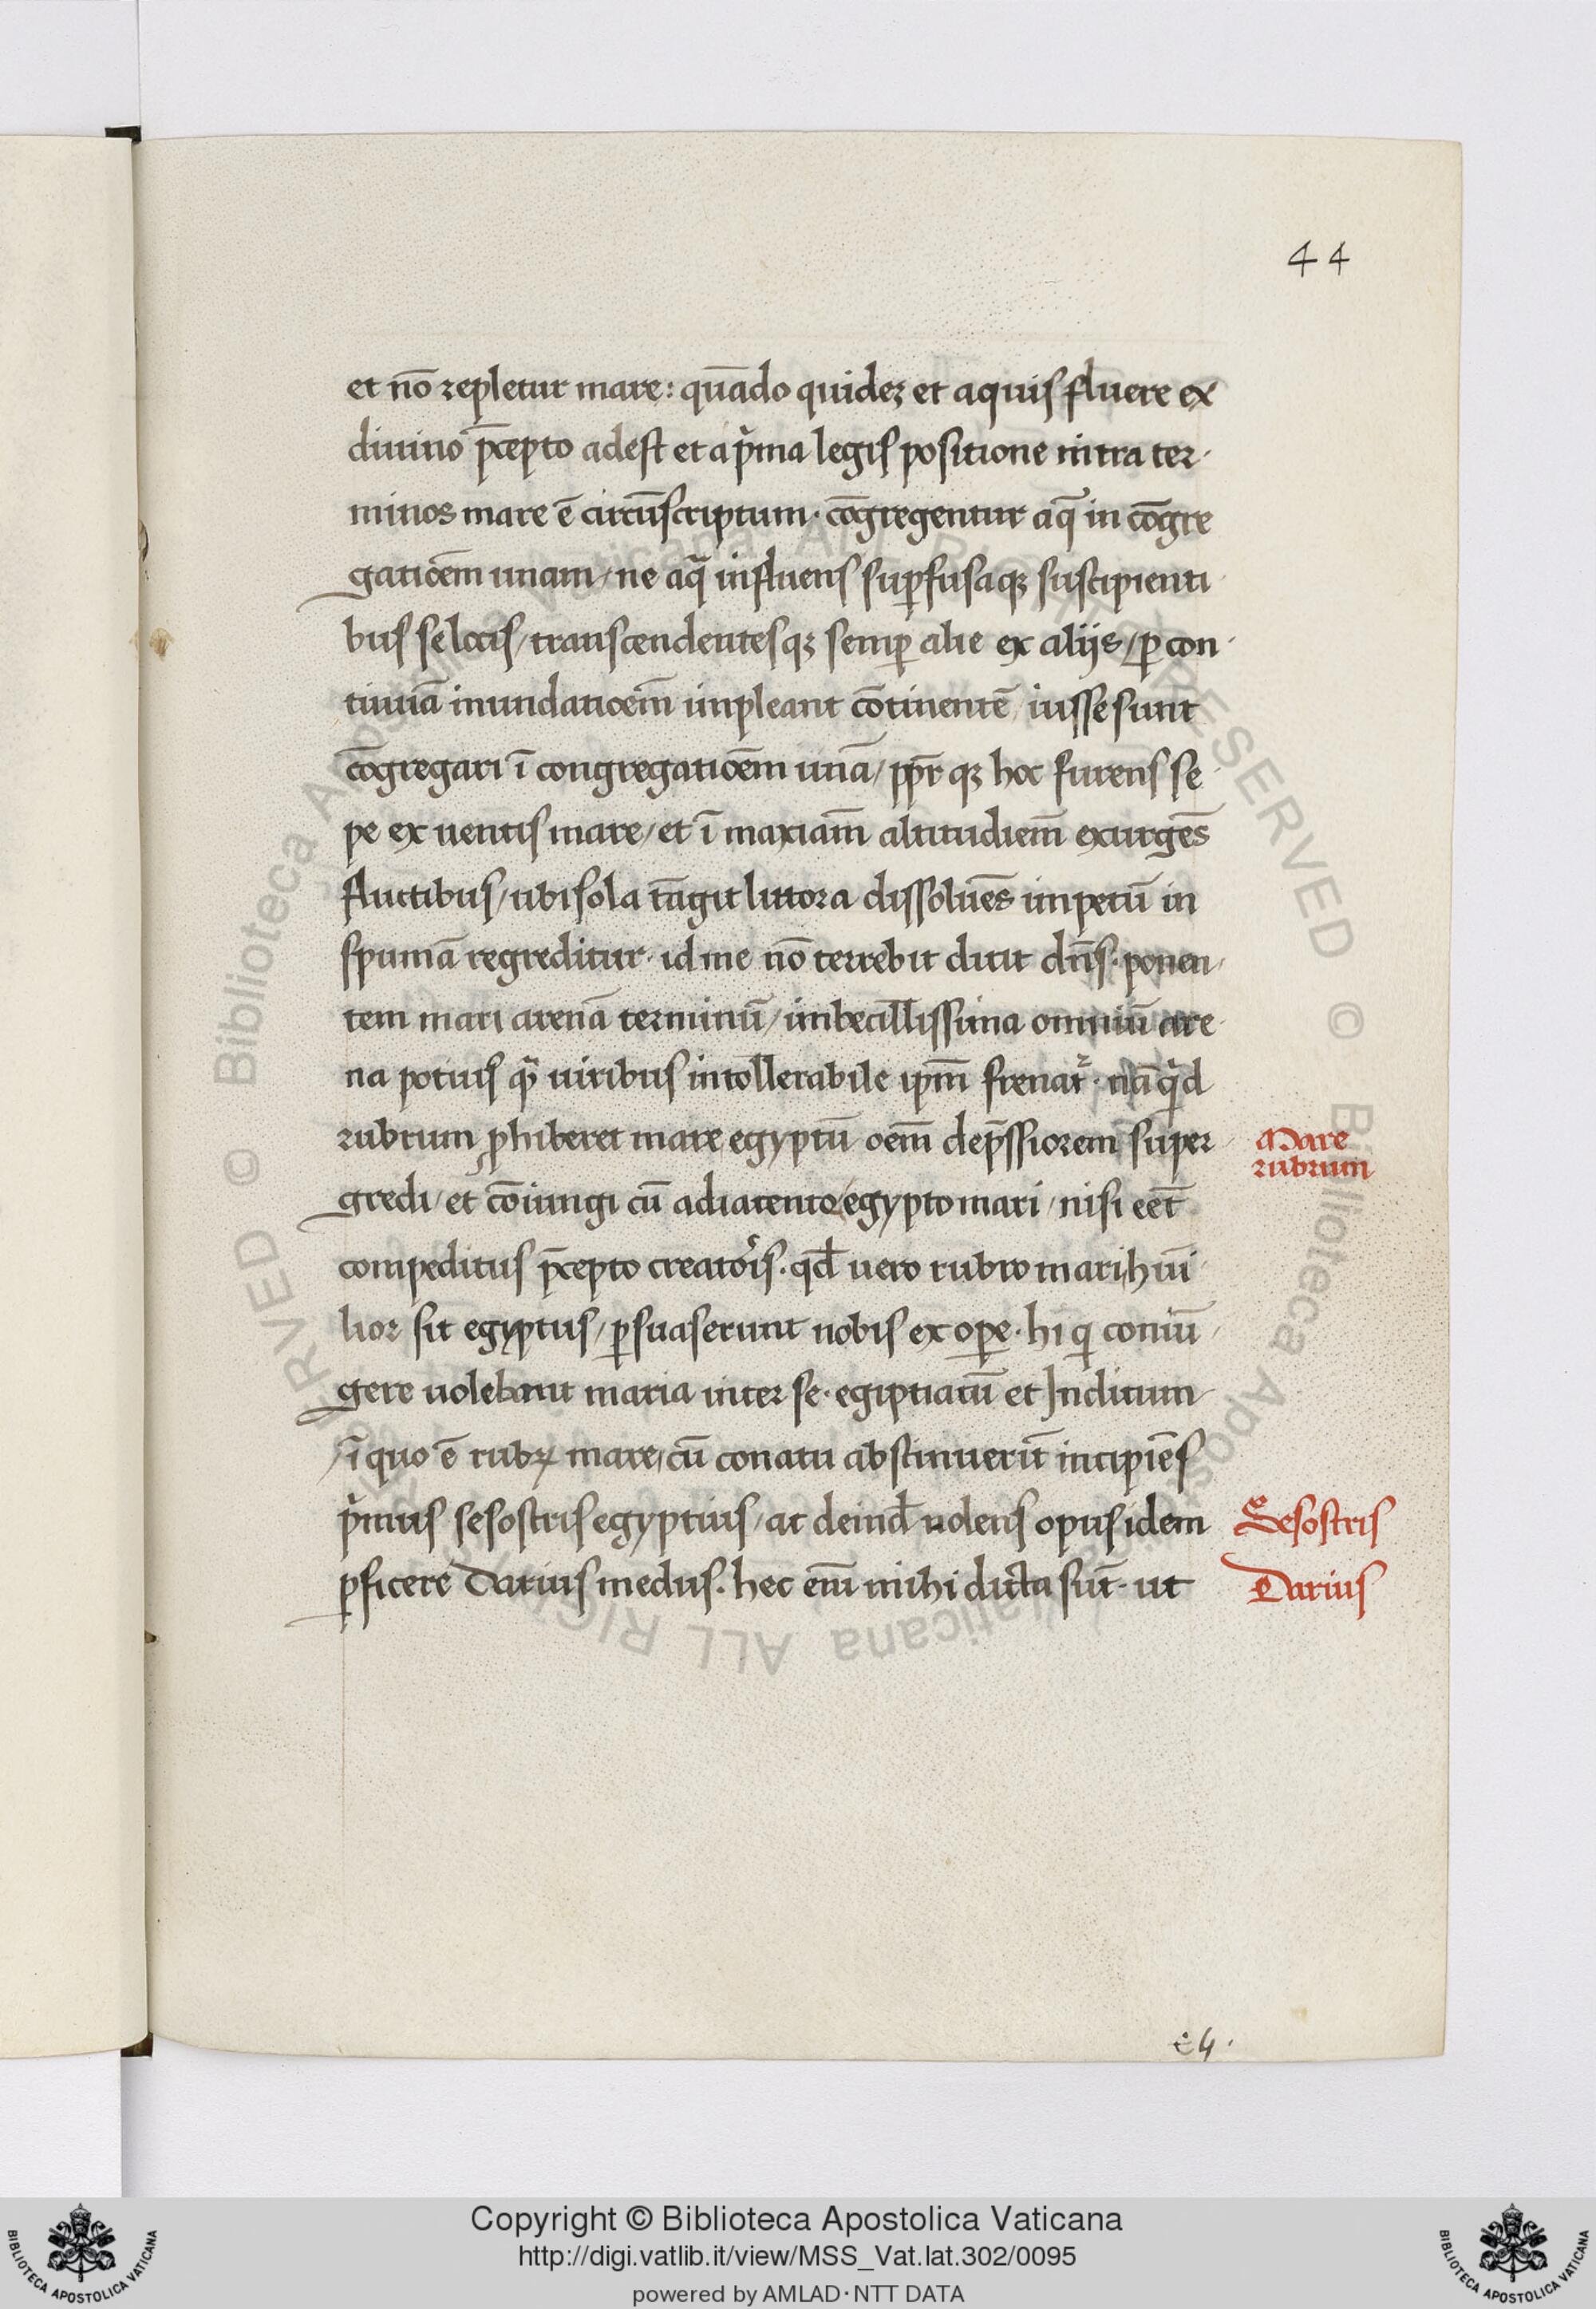 44
et nō repletur mare: quādo quidez et aquis fluere ex
diuino p̄cepto adest et a pͥma legis positione intra ter-
minos mare ē circūscriptum· cōgregentur aq̄ in cōgre
gatiōem unam/ ne aqᷓ influens suꝑfusaqꝫ suscipienti
bus se locis/ transcendentesqꝫ semꝑ alie ex alijs/ ꝑ con-
tinuā inundatioēm impleant cōtinentē iusse sunt
cōgregari ī congregatiōem unā/ ppr̄ qꝫ hoc furens se
pe ex uentis mare/ et ī maxiām altitudiēm exurgēs
fluctibus/ ubi sola tāgit littora dissoluēs impetū in
spumā regreditur· id me nō terrebit dicit dn̄s· ponen-
tem mari arenā terminū/ imbecillissima omniū are
na potius qᷓ uiribus intollerabile ip̄m frenat᷑· nā qͥd
rubrum ꝓhiberet mare egyptū oēm dep̄ssiorem super
gredi/ et cōiungi cū adiacento/ egypto mari/ nisi eēt
compeditus p̄cepto creatoͬis· qd̄ uero rubro mari hūi
lior sit egyptus/ ꝑsuaserunt nobis ex oꝑe· hi q̄ coniū
gere uolebant maria inter se· egiptiacū et Inditum
/ī quo ē rubꝝ mare/ cū conatu abstinuerūt incipiēs
pͥmus sesostris egyptius/ ac deind̄ uolens opus idem
ꝑficere Darius medus· hec enī mihi dicta sūt· ut
Mare
rubrum
Sesostris
Darius
e4·
Copyright © Biblioteca Apostolica Vaticana
http://digi.vatlib.it/view/MSS_Vat.lat.302/0095
powered by AMLAD·NTT DATA
BIBLIOTECA APOSTOLICA VATICANA
BIBLIOTECA APOSTOLICA VATICANA